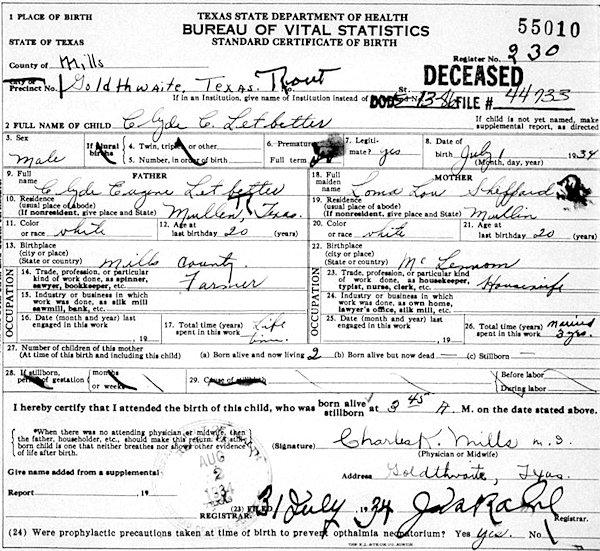 1 PLACE OF BIRTH
TEXAS STATE DEPARTMENT OF HEALTH
BUREAU OF VITAL STATISTICS
STANDARD CERTIFICATE OF BIRTH
55010
STATE OF TEXAS
County of Mills
Register No. 230
City or
Precinct No. Goldthwaite, Texas. No. St.
If in an Institution, give name of Institution instead of
DECEASED
DOD 5-13-86 FILE # 44733
2 FULL NAME OF CHILD Clyde C. Letbetter
If child is not yet named, make
supplemental report, as directed
3. Sex Male
If Plural births
4. Twin, triplet or other
5. Number, in order of birth
6. Premature
Full term
7. Legiti-
mate? yes
8. Date of
birth July 1 1934
(Month, day, year)
FATHER
9. Full name Clyde Eugene Letbetter
10. Residence
(usual place of abode)
(If nonresident, give place and State) Mullin, Texas.
11. Color
or race white
12. Age at
last birthday 20 (years)
13. Birthplace
(city or place)
(State or country) Mills County
OCCUPATION
14. Trade, profession, or particular
kind of work done, as spinner,
sawyer, bookkeeper, etc. Farmer
15. Industry or business in which
work was done, as silk mill
sawmill, bank, etc.
16. Date (month and year) last
engaged in this work , 19
17. Total time (years)
spent in this work Life
MOTHER
18. Full
maiden
name Loma Lou Sheffard
19. Residence
(usual place of abode)
(If nonresident, give place and State) Mullin
20. Color
or race white
21. Age at
last birthday 20 (years)
22. Birthplace
(city or place)
(State or country)
OCCUPATION
23. Trade, profession, or particular kind
of work done, as housekeeper,
typist, nurse, clerk, etc. Housewife
24. Industry or business in which
work was done, as own home,
lawyer's office, silk mill, etc.
25. Date (month and year) last
engaged in this work , 19
26. Total time (years)
spent in this work married 3 yrs.
27. Number of children of this mother
(At time of this birth and including this child) (a) Born alive and now living 2 (b) Born alive but now dead (c) Stillborn
28. If stillborn,
period of gestation months or weeks
29. Cause of stillbirth
Before labor
During labor
I hereby certify that I attended the birth of this child, who was born alive stillborn at 3 45 A. M. on the date stated above.
*When there was no attending physician or midwife, then
the father, householder, etc., should make this return. A still-
born child is one that neither breathes nor shows other evidence
of life after birth.
(Signature) Charles K. Mills M.D.
(Physician or Midwife)
Give name added from a supplemental
Address Goldthwaite, Texas.
Report , 19
AUG 2 1934
(23) FILED 31 July, 1934
REGISTRAR. Registrar.
(24) Were prophylactic precautions taken at time of birth to prevent opthalmia neonatorium? Yes yes. No